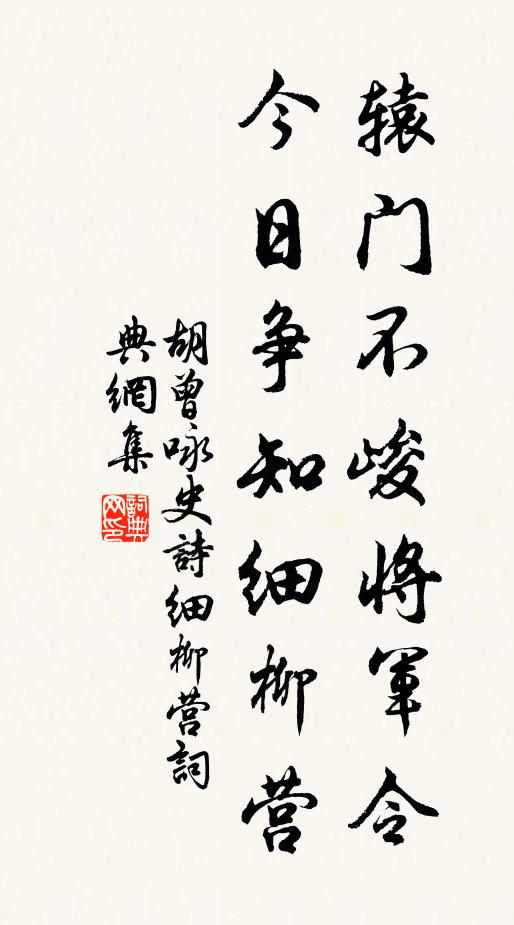 辕门不峻将軍令
今日争知细柳营
胡曾咏史詩细柳营詞
典網集
詞典
网印